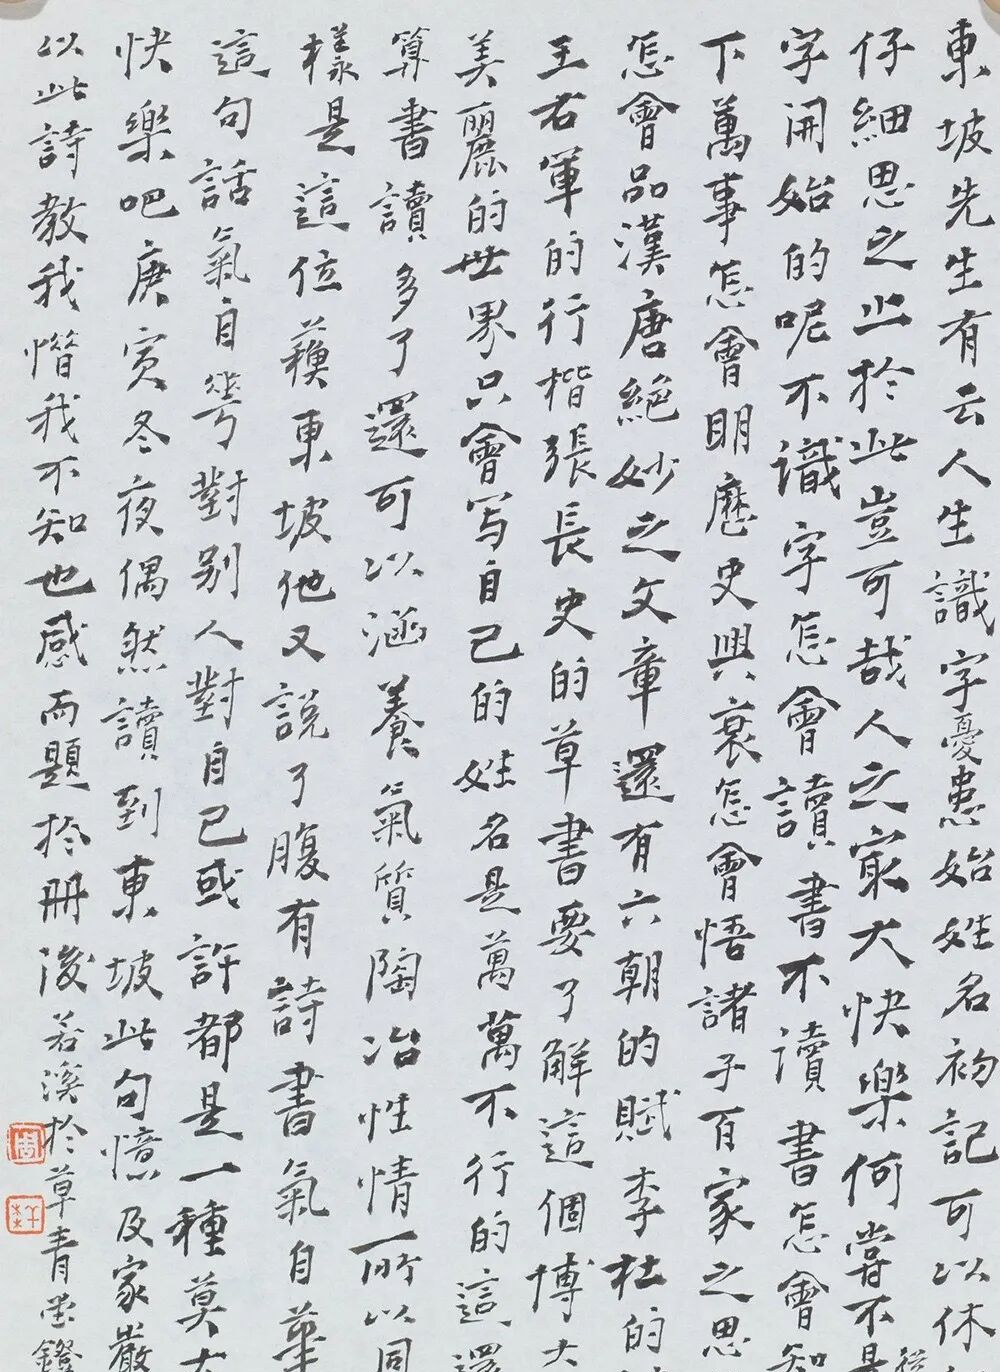 東坡先生有云人生識字憂患始姓名初記可以休
仔細思之止於此豈可哉人之最大快樂何嘗不是
字開始的呢不識字怎會讀書不讀書怎會知
下萬事怎會明歷史興衰怎會悟諸子百家之思
怎會品漢唐絕妙之文章還有六朝的賦李杜的
王右軍的行楷張長史的草書要了解這個博大
美麗的世界只會写自己的姓名是萬萬不行的這還
算書讀多了還可以涵養氣質陶冶性情所以同
樣是這位蘇東坡他又說了腹有詩書氣自華
這句話氣自華對別人對自己或許都是一種莫大
快樂吧庚寅冬夜偶然讀到東坡此句憶及家嚴
以此詩教我惜我不知也感而題於冊後若溪於草青堂鐙